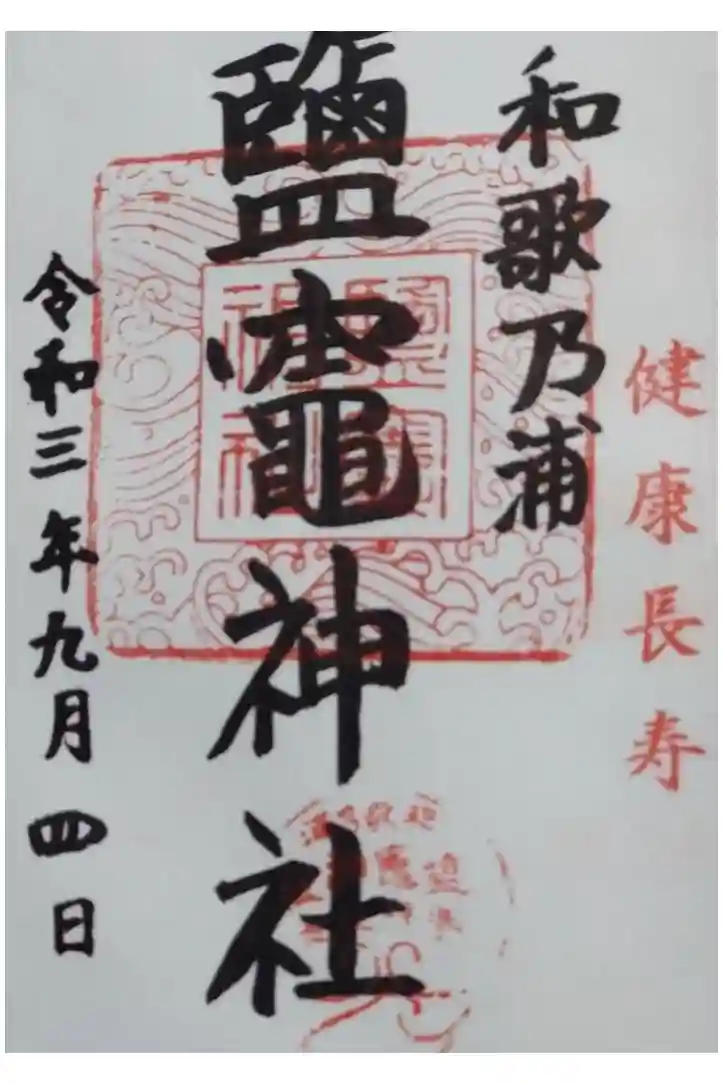 健康長寿
和歌乃浦
鹽竈神社
令和三年九月四日